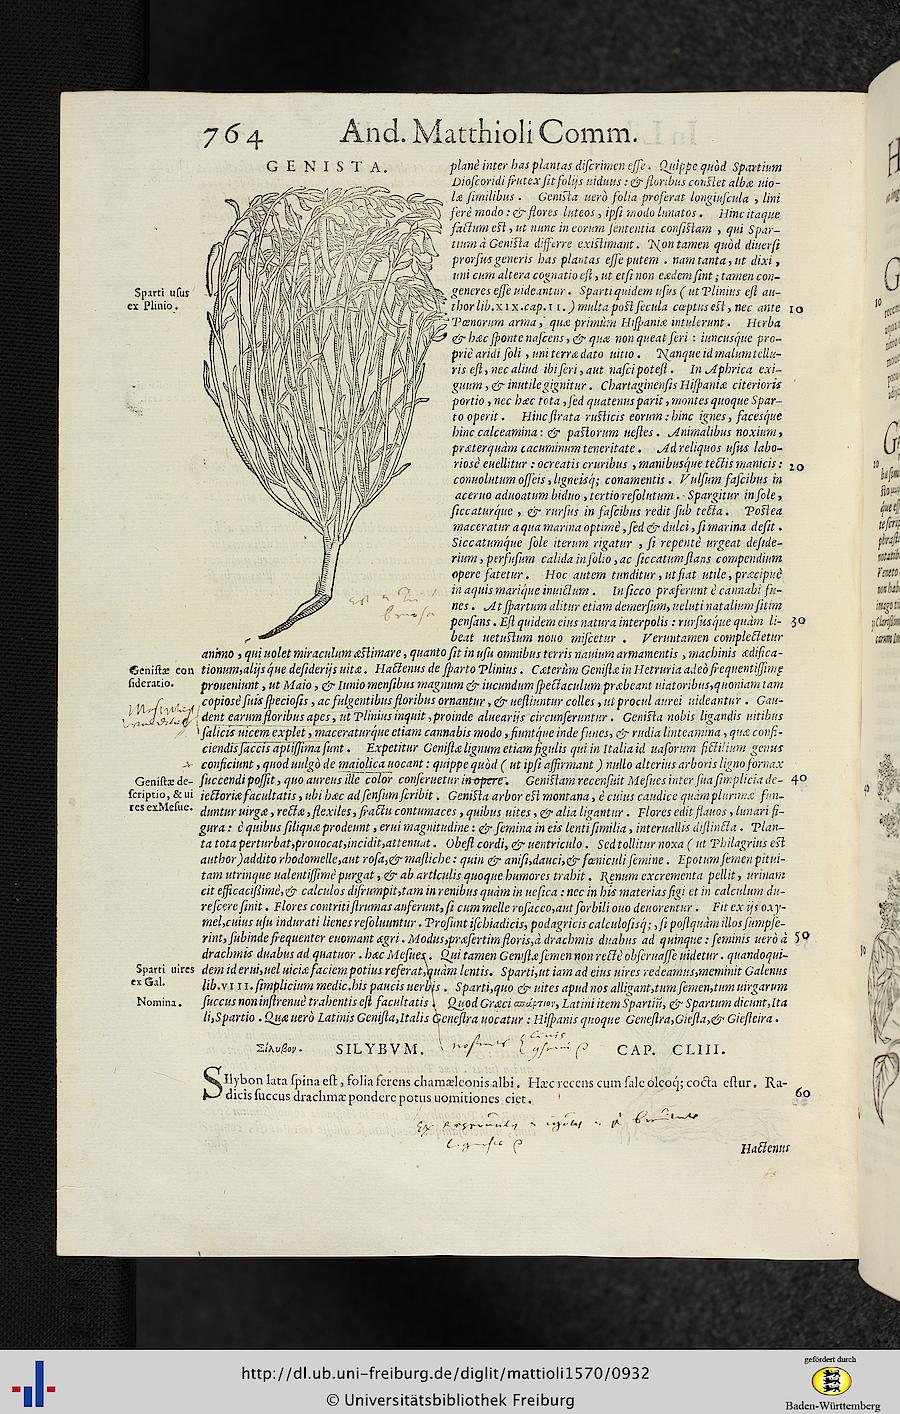 764 And. Matthioli Comm.
GENISTA.
planè inter has plantas discrimen esse. Quippe quòd Spartium
Dioscoridi frutex sit folijs uiduus: & floribus constet albæ uio-
læ similibus. Genista uerò folia proferat longiuscula, lini
ferè modo: & flores luteos, ipsi modo lunatos. Hinc itaque
factum est, ut nunc in eorum sententia consistam, qui Spar-
tium à Genista differre existimant. Non tamen quòd diuersi
prorsus generis has plantas esse putem. nam tanta, ut dixi,
uni cum altera cognatio est, ut etsi non eædem sint; tamen con-
generes esse uideantur. Sparti quidem usus (ut Plinius est au-
thor lib. XIX. cap. II.) multa post secula cœptus est, nec ante 10
Pœnorum arma, quæ primùm Hispaniæ intulerunt. Herba
& hæc sponte nascens, & quæ non queat seri: iuncusque pro-
priè aridi soli, uni terræ dato uitio. Nanque id malum tellu-
ris est, nec aliud ibi seri, aut nasci potest. In Aphrica exi-
guum, & inutile gignitur. Chartaginensis Hispaniæ citerioris
portio, nec hæc tota, sed quatenus parit, montes quoque Spar-
to operit. Hinc strata rusticis eorum: hinc ignes, facesque
hinc calceamina: & pastorum uestes. Animalibus noxium,
præterquàm cacuminum teneritate. Ad reliquos usus labo-
riosè euellitur: ocreatis cruribus, manibusque tectis manicis: 20
conuolutum osseis, ligneisq; conamentis. Vulsum fascibus in
aceruo aduoatum biduo, tertio resolutum. Spargitur in sole,
siccaturque, & rursus in fascibus redit sub tecta. Postea
maceratur aqua marina optimè, sed & dulci, si marina desit.
Siccatumque sole iterum rigatur, si repentè urgeat deside-
rium, perfusum calida in solio, ac siccatum stans compendium
opere fatetur. Hoc autem tunditur, ut fiat utile, præcipuè
in aquis marique inuictum. In sicco præferunt è cannabi fu-
nes. At spartum alitur etiam demersum, ueluti natalium sitim
pensans. Est quidem eius natura interpolis: rursusque quàm li- 30
beat uetustum nouo miscetur. Veruntamen complectetur
Sparti usus
ex Plinio.
animo, qui uolet miraculum æstimare, quanto sit in usu omnibus terris nauium armamentis, machinis ædifica-
tionum, alijs que desiderijs uitæ. Hactenus de sparto Plinius. Cæterùm Genistæ in Hetruria adeò frequentissimæ
proueniunt, ut Maio, & Iunio mensibus magnum & iucundum spectaculum præbeant uiatoribus, quoniam tam
copiosè suis speciosis, ac fulgentibus floribus ornantur, & uestiuntur colles, ut procul aurei uideantur. Gau-
dent earum floribus apes, ut Plinius inquit, proinde aluearijs circunseruntur. Genista nobis ligandis uitibus
salicis uicem explet, maceraturque etiam cannabis modo, fiuntque inde funes, & rudia linteamina, quæ confi-
ciendis saccis aptissima sunt. Expetitur Genistæ lignum etiam figulis qui in Italia id uasorum fictilium genus
conficiunt, quod uulgò de maiolica uocant: quippe quòd (ut ipsi affirmant) nullo alterius arboris ligno fornax
succendi possit, quo aureus ille color conseruetur in opere. Genistam recensuit Mesues inter sua simplicia de- 40
iectoriæ facultatis, ubi hæc ad sensum scribit. Genista arbor est montana, è cuius caudice quàm plurimæ fun-
duntur uirgæ, rectæ, flexiles, fractu contumaces, quibus uites, & alia ligantur. Flores edit flauos, lunari fi-
gura: è quibus siliquæ prodeunt, erui magnitudine: & semina in eis lenti similia, interuallis distincta. Plan-
ta tota perturbat, prouocat, incidit, attenuat. Obest cordi, & uentriculo. Sed tollitur noxa (ut Philagrius est
author) addito rhodomelle, aut rosa, & mastiche: quin & anisi, dauci, & fœniculi semine. Epotum semen pitui-
tam utrinque ualentissimè purgat, & ab articulis quoque humores trahit. Renum excrementa pellit, urinam
cit efficacissimè, & calculos disrumpit, tam in renibus quàm in uesica: nec in his materias figi et in calculum du-
rescere sinit. Flores contriti strumas auferunt, si cum melle rosaceo, aut sorbili ouo deuorentur. Fit ex ijs oxy-
mel, cuius usu indurati lienes resoluuntur. Prosunt ischiadicis, podagricis calculosisq;, si postquàm illos sumpse-
rint, subinde frequenter euomant ægri. Modus, præsertim floris, à drachmis duabus ad quinque: seminis uerò à 50
drachmis duabus ad quatuor. hæc Mesues. Qui tamen Genistæ semen non rectè obseruasse uidetur. quandoqui-
dem id erui, uel uiciæ faciem potius referat, quàm lentis. Sparti, ut iam ad eius uires redeamus, meminit Galenus
lib. VIII. simplicium medic. his paucis uerbis. Sparti, quo & uites apud nos alligant, tum semen, tum uirgarum
succus non instrenuè trahentis est facultatis. Quod Græci σπάρτιον, Latini item Spartiū, & Spartum dicunt, Ita
li, Spartio. Quæ uerò Latinis Genista, Italis Genestra uocatur: Hispanis quoque Genestra, Giesta, & Giesteira.
Genistæ con
sideratio.
Genistæ de-
scriptio, & ui
res ex Mesue.
Sparti uires
ex Gal.
Nomina.
Σίλυβον. SILYBVM. CAP. CLIII.
Silybon lata spina est, folia ferens chamæleonis albi. Hæc recens cum sale oleoq; cocta estur. Ra-
dicis succus drachmæ pondere potus uomitiones ciet. 60
Hactenus
http://dl.ub.uni-freiburg.de/diglit/mattioli1570/0932
© Universitätsbibliothek Freiburg
gefördert durch
Baden-Württemberg